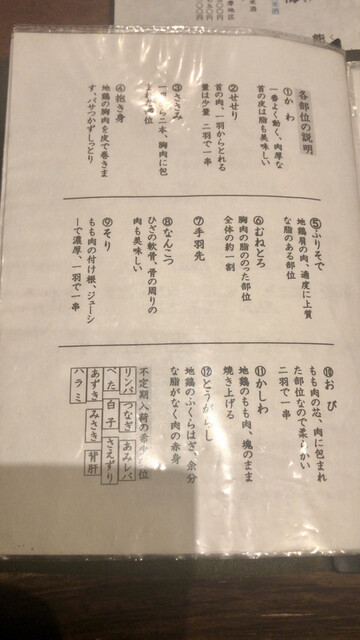 各部位の説明
①かわ
一番よく動く、肉厚な
首の皮は脂も美味しい
②せせり
首の肉、一羽からとれる
量は少量 二羽で一串
③ささみ
④抱き身
地鶏の胸肉を皮で巻きま
す、パサつかずしっとり
⑤ふりそで
地鶏肩の肉、適度に上質
な脂のある部位
⑥むねとろ
胸肉の脂ののった部位
全体の約一割
⑦手羽先
⑧なんこつ
ひざの軟骨、骨の周りの
肉も美味しい
⑨そり
もも肉の付け根、ジューシ
ーで濃厚、一羽で一串
⑩おび
もも肉の芯、肉に包まれ
た部位なので柔らかい
二羽で一串
⑪かしわ
地鶏のもも肉、塊のまま
焼き上げる
⑫とうがらし
地鶏のふくらはぎ、余分
な脂がなく肉の赤身
不定期入荷の希少部位
リンパ つなぎ あみレバ
べた 白子 さえずり
あずき みさき 背肝
ハラミ